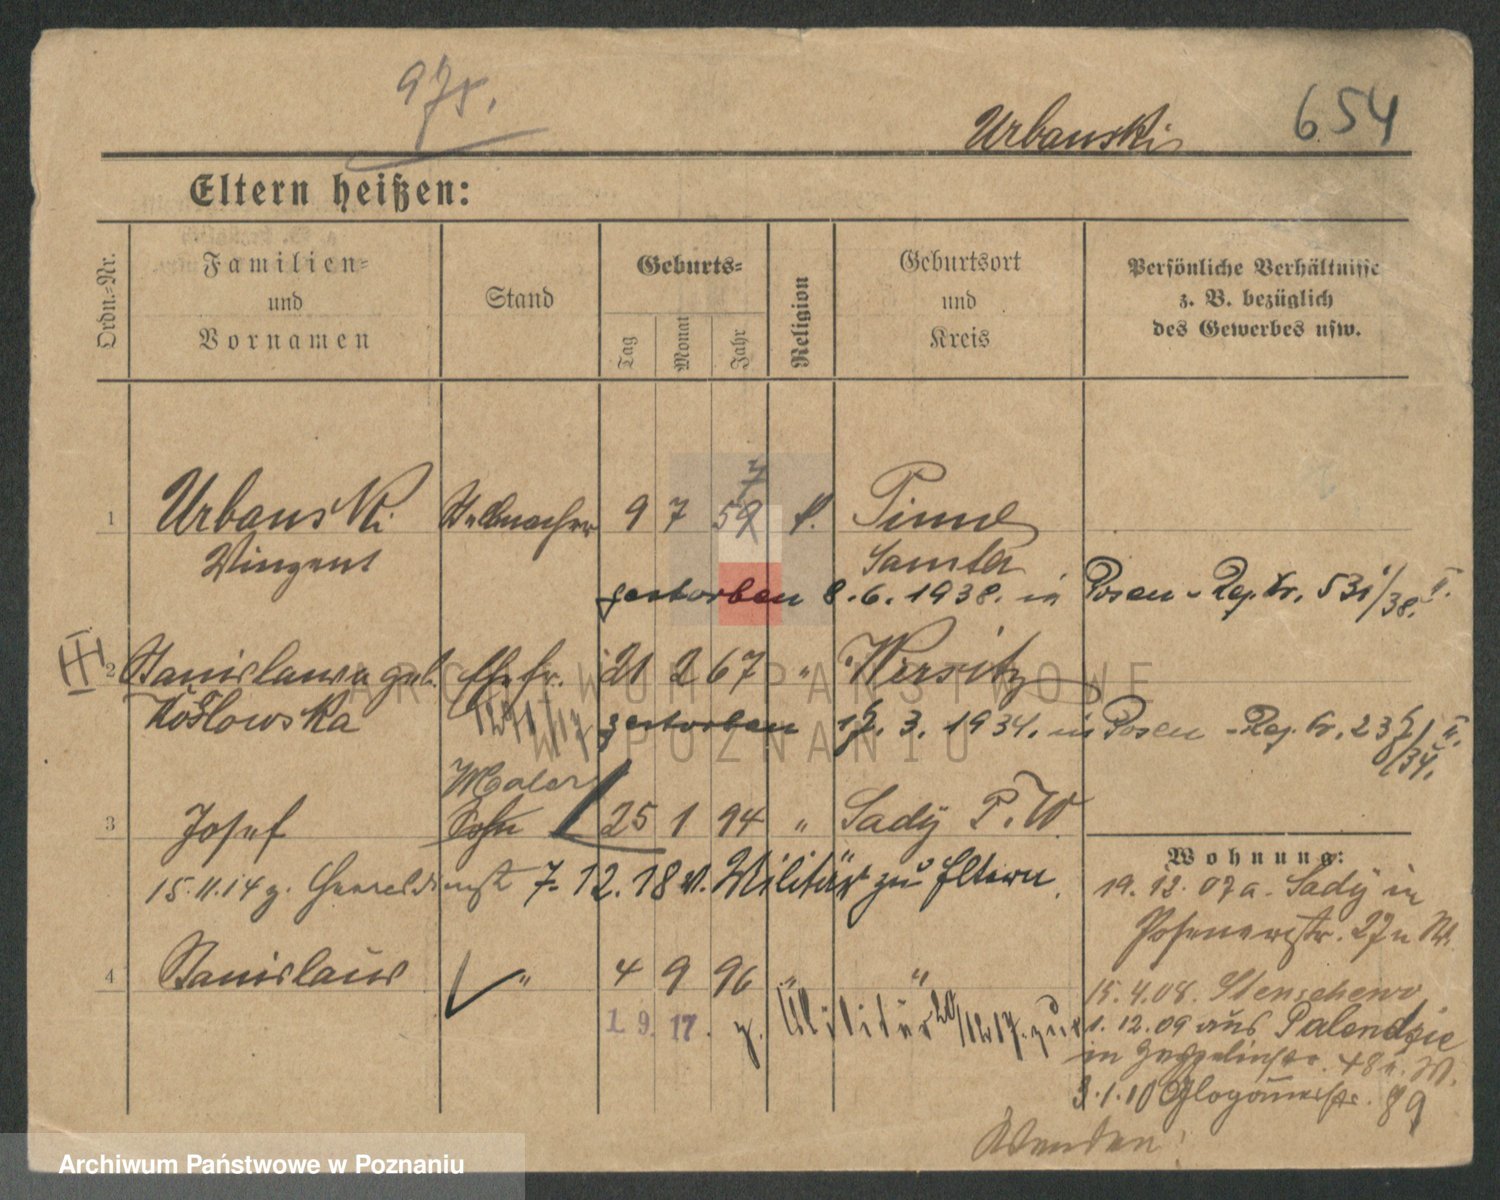 975.
Urbanski
654
Eltern heißen:
Ordn.-Nr.
Familien-
und
Vornamen
Stand
Geburts-
Tag
Monat
Jahr
Religion
Geburtsort
und
Kreis
Persönliche Verhältnisse
z. B. bezüglich
des Gewerbes usw.
1 Urbanski Stellmacher 9 7 59 7 k. Pinne
Vinzent Samter
gestorben 8.6.1938. in Posen - Reg. Nr. 531/38. II.
III 2 Stanislawa geb. Ehefr. 21 2 67 " Wersitz
Kosłowska
gestorben 3. 1934. in Posen - Reg. Nr.
/34. II.
Maler
3 Josef Sohn 25 1 94 " Sady P. W.
15.11.14 z. Heeresdienst 7.12.18 v. Militär zu Eltern.
4 Stanislaus " 4 9 96 " "
1. 9. 17. z. Militär 20/12 17. zur
Wohnung:
19. 12. 07 a. Sady in
Posenerstr. 27
15.4.08. Stenschewo
1.12.09 aus Palendzie
in Zeppelinstr. 48
3.1.10 Glogauerstr. 89
Wenden!
ARCHIWUM PAŃSTWOWE
W POZNANIU
Archiwum Państwowe w Poznaniu